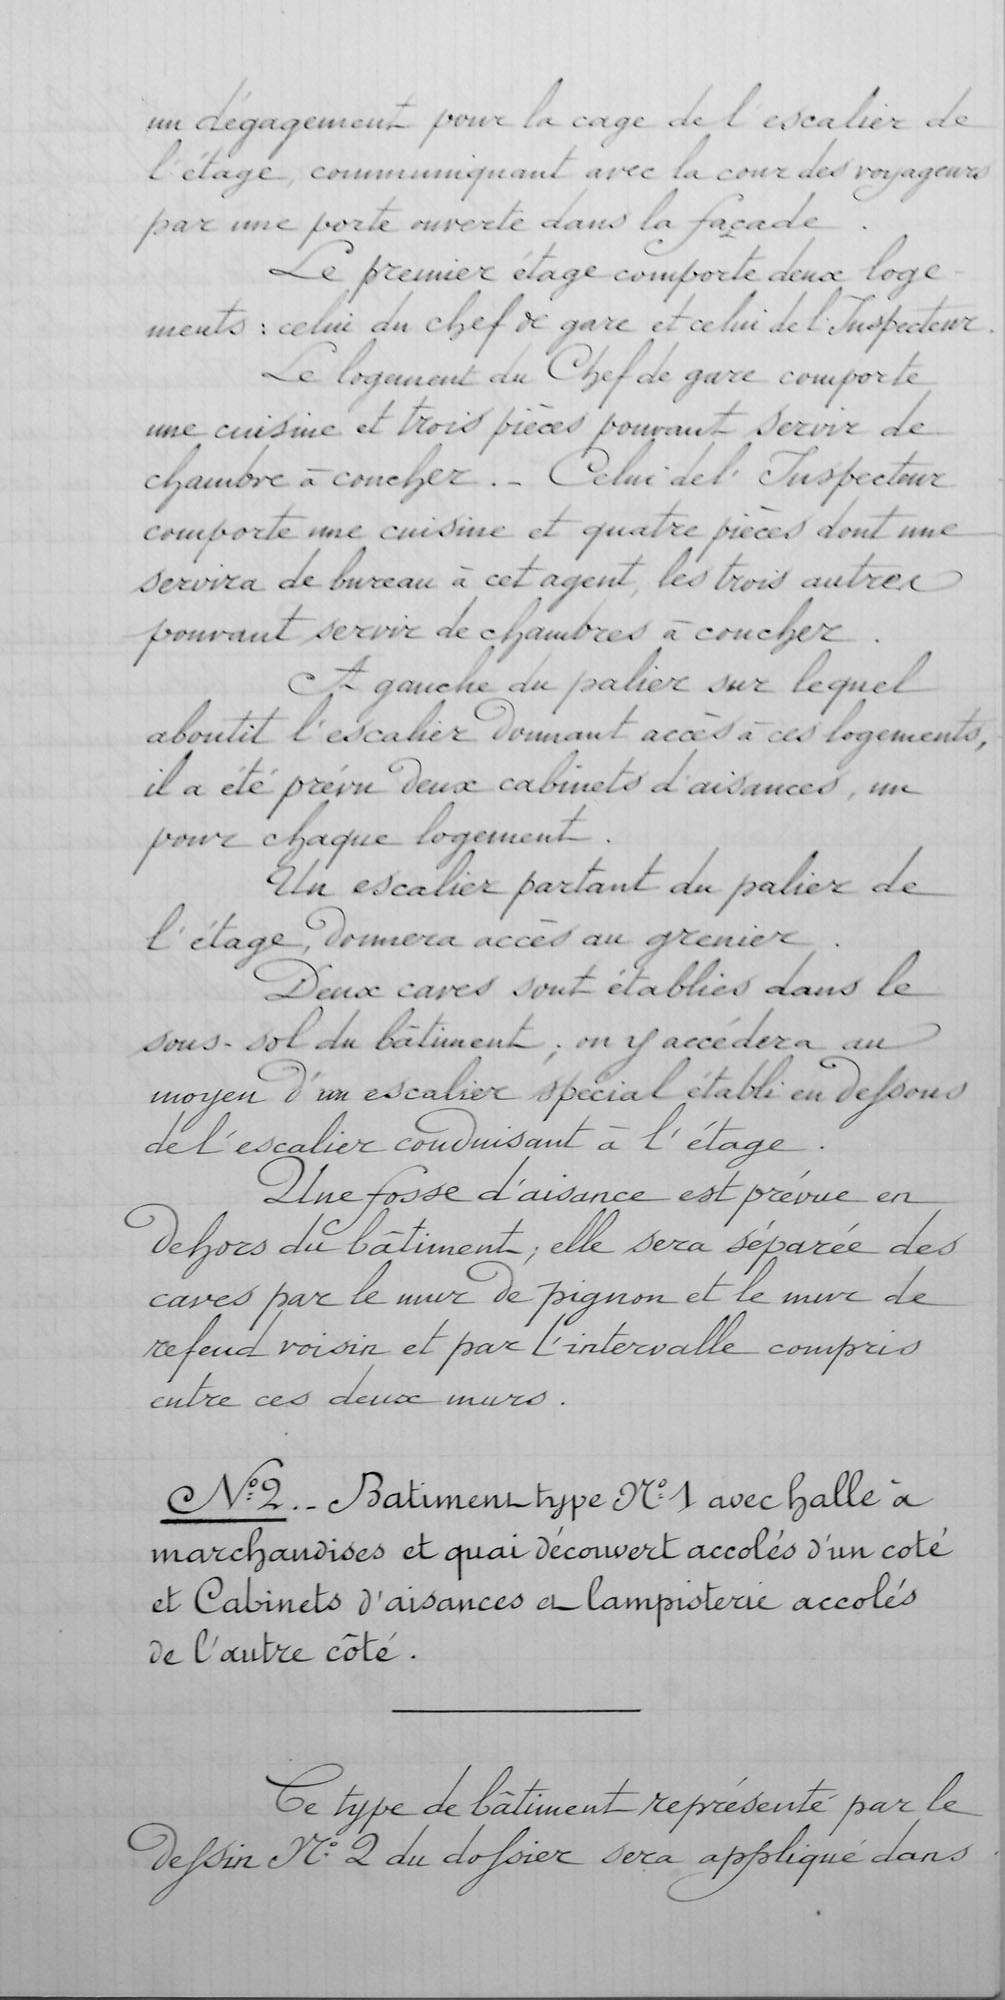 un dégagement pour la cage de l'escalier de
l'étage, communiquant avec la cour des voyageurs
par une porte ouverte dans la façade.
Le premier étage comporte deux loge-
ments : celui du chef de gare et celui de l'Inspecteur.
Le logement du Chef de gare comporte
une cuisine et trois pièces pouvant servir de
chambre à coucher. - Celui de l'Inspecteur
comporte une cuisine et quatre pièces dont une
servira de bureau à cet agent, les trois autres
pouvant servir de chambres à coucher.
A gauche du palier sur lequel
aboutit l'escalier donnant accès à ces logements,
il a été prévu deux cabinets d'aisances, un
pour chaque logement.
Un escalier partant du palier de
l'étage, donnera accès au grenier.
Deux caves sont établies dans le
sous-sol du bâtiment ; on y accédera au
moyen d'un escalier spécial établi en dessous
de l'escalier conduisant à l'étage.
Une fosse d'aisance est prévue en
dehors du bâtiment ; elle sera séparée des
caves par le mur de pignon et le mur de
refend voisin et par l'intervalle compris
entre ces deux murs.
N° 2. - Batiment type N° 1 avec halle à
marchandises et quai découvert accolés d'un coté
et Cabinets d'aisances et lampisterie accolés
de l'autre côté.
Ce type de bâtiment représenté par le
dessin N° 2 du dossier sera appliqué dans